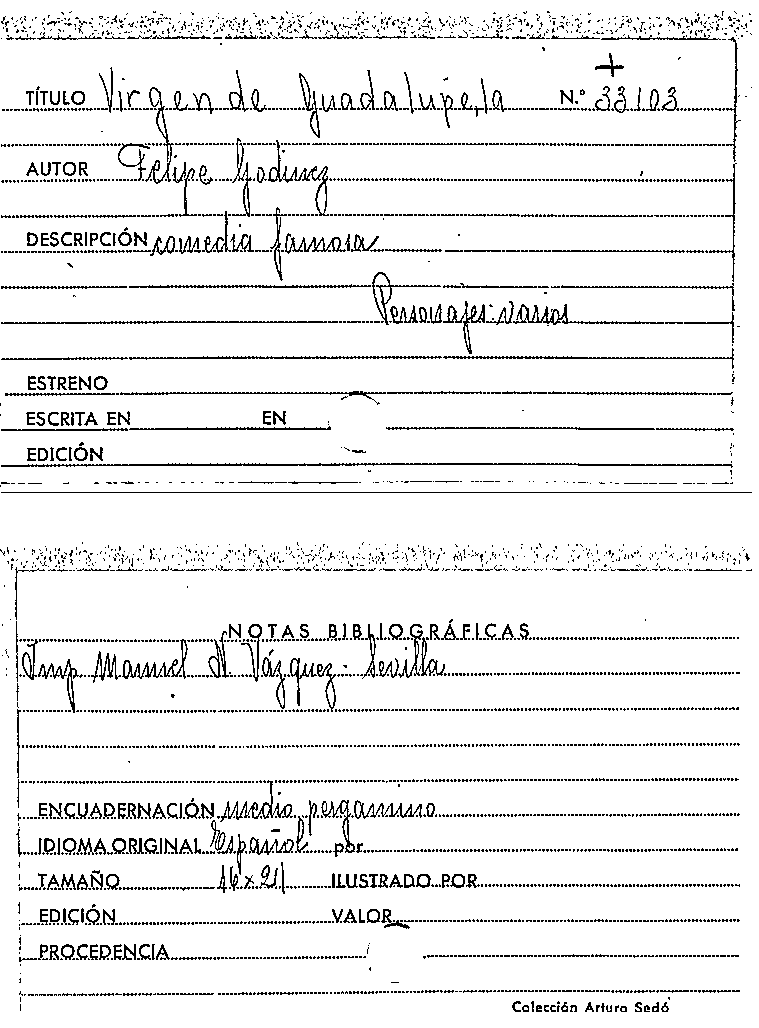 +
TÍTULO Virgen de Guadalupe, la N.º 33103
AUTOR Felipe Godinez
DESCRIPCIÓN comedia famosa
Personajes: varios
ESTRENO
ESCRITA EN EN
EDICIÓN
NOTAS BIBLIOGRÁFICAS
Imp Manuel H. Vázquez - Sevilla
ENCUADERNACIÓN medio pergamino
IDIOMA ORIGINAL Español por
TAMAÑO 16 x 21 ILUSTRADO POR
EDICIÓN VALOR
PROCEDENCIA
Colección Arturo Sedó